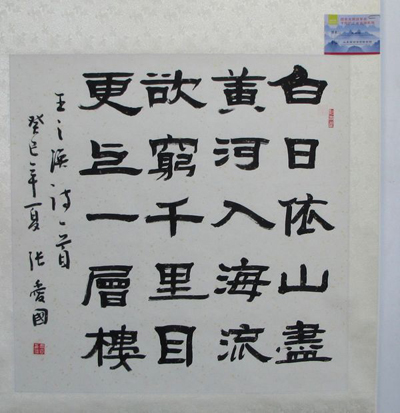 白日依山盡
黄河入海流
欲窮千里目
更上一層樓
王之涣诗一首
癸巳年夏 张愛國